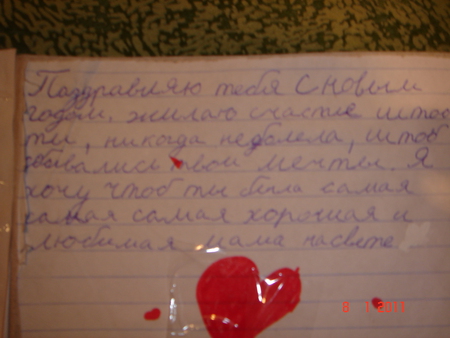 Поздравляю тебя с новым
годом, жилаю счастие штоб
ты, никогда не долела, штоб
сбивались твои мечты. Я
хочу чтоб ты была самая
самая самая хорошая и
любимая мама на свете
8 1 2011